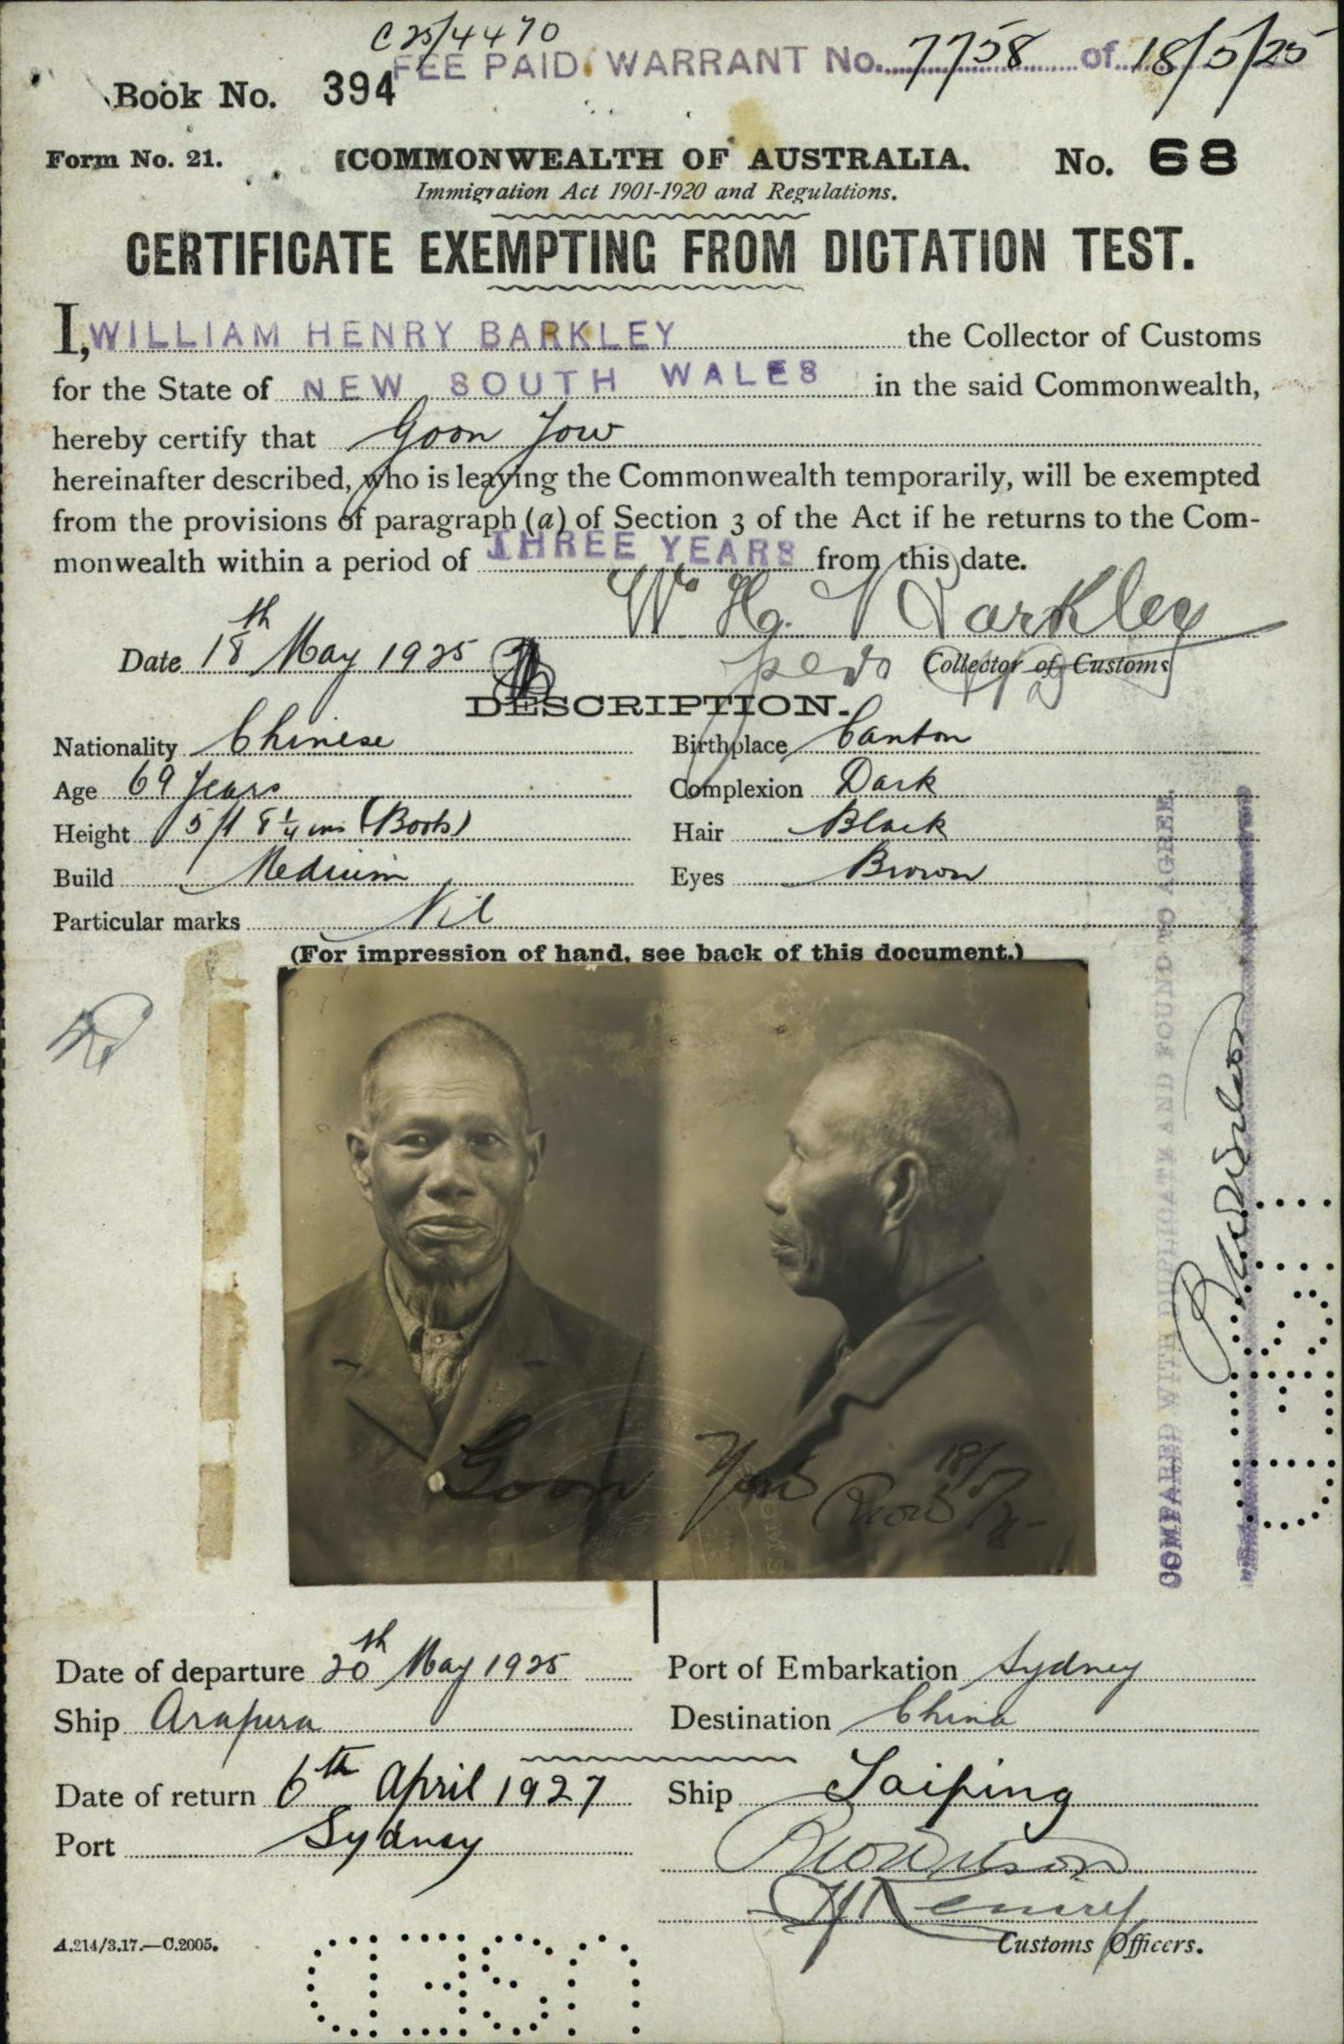 C 25/4470
FEE PAID. WARRANT No. 7758 of 18/5/25
Book No. 394
Form No. 21. COMMONWEALTH OF AUSTRALIA. No. 68
Immigration Act 1901-1920 and Regulations.
CERTIFICATE EXEMPTING FROM DICTATION TEST.
I, WILLIAM HENRY BARKLEY the Collector of Customs
for the State of NEW SOUTH WALES in the said Commonwealth,
hereby certify that Goon Yow
hereinafter described, who is leaving the Commonwealth temporarily, will be exempted
from the provisions of paragraph (a) of Section 3 of the Act if he returns to the Com-
monwealth within a period of THREE YEARS from this date.
W. H. Barkley
Date 18th May 1925 Collector of Customs
DESCRIPTION.
Nationality Chinese Birthplace Canton
Age 69 years Complexion Dark
Height 5 ft 8 1/4 ins (Boots) Hair Black
Build Medium Eyes Brown
Particular marks Nil
(For impression of hand, see back of this document.)
Goon Yow
18/5/25
COMPARED WITH DUPLICATE AND FOUND TO AGREE.
Date of departure 20th May 1925 Port of Embarkation Sydney
Ship Arafura Destination China
Date of return 6th April 1927 Ship Taiping
Port Sydney
Customs Officers.
A.214/3.17.—C.2005.
USED